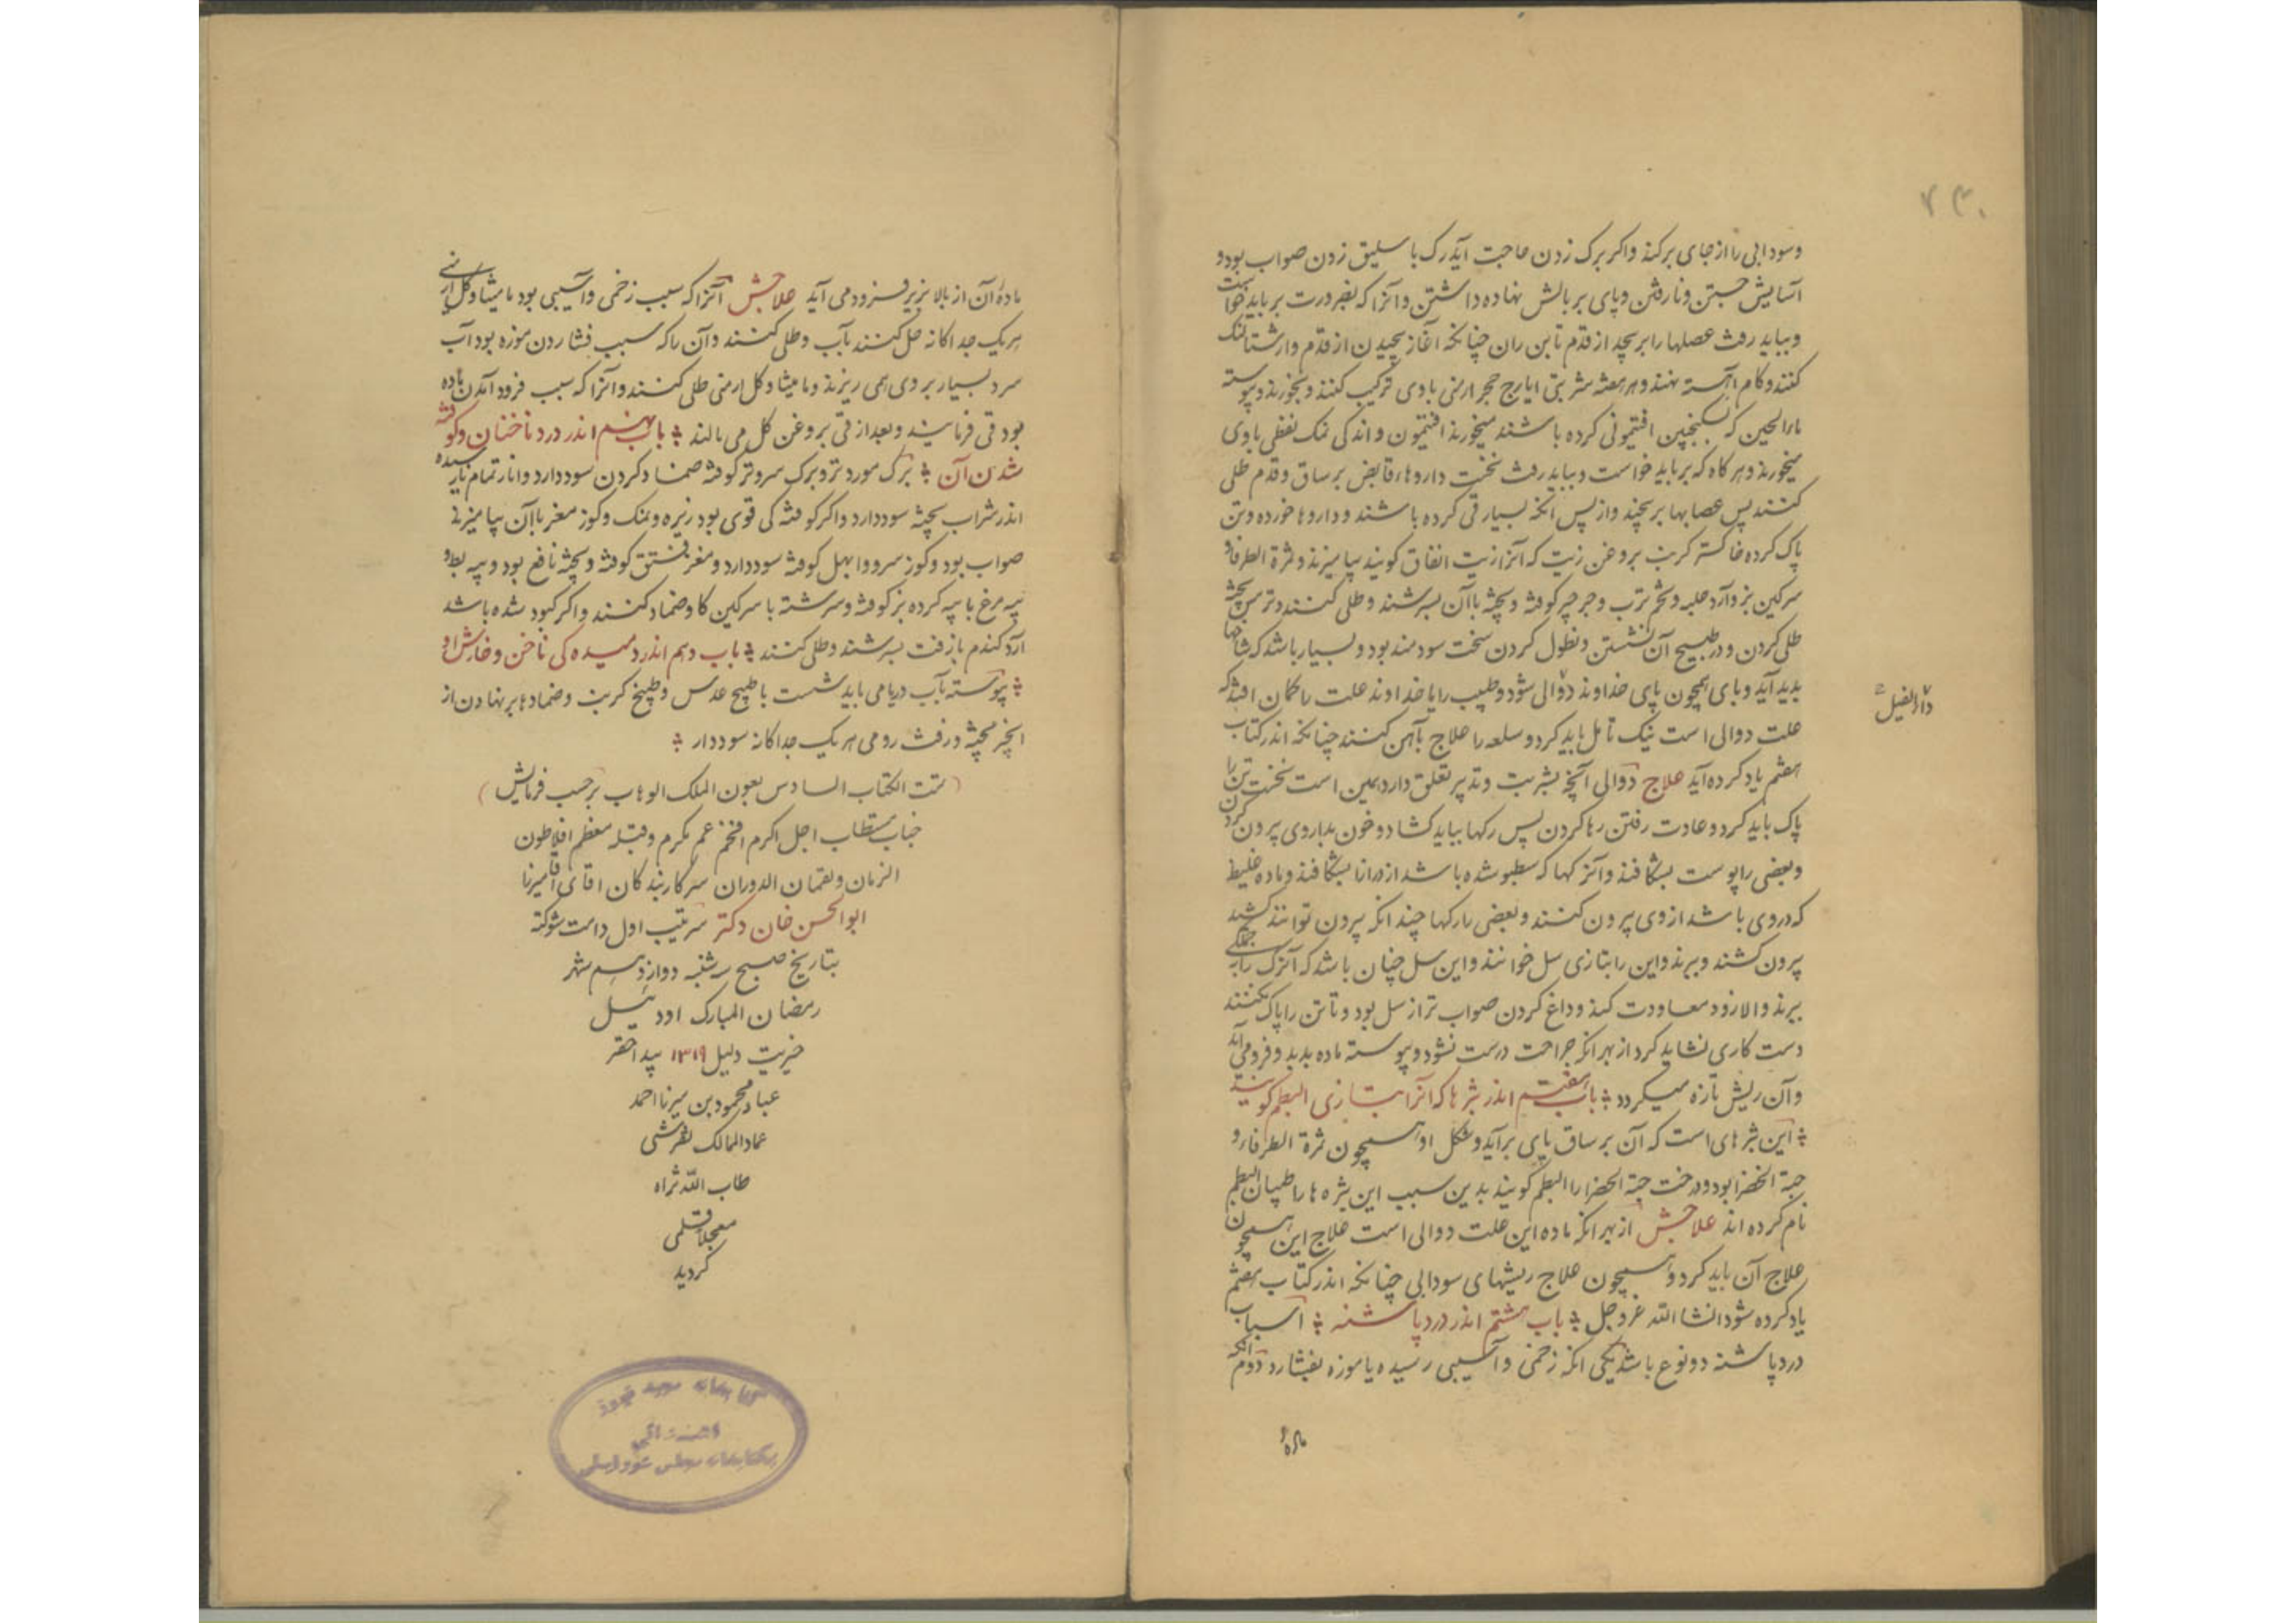 ۷۳۰
وسودایی را از جای برکند واکر برک زدن حاجت آید رک باسلیق زدن صواب بود و
آسایش جستن و نارفتن و پای بر بالش نهاده داشتن و آنرا که بضرورت بر باید خواست
و بباید رفت عصبها را بر پیچد از قدم تا بن ران چنانکه آغاز پیچیدن از قدم و ارشتالنک
کنند و کام آهسته نهند و هر هفته شربتی ایارج حجر ارمنی با وی ترکیب کنند و بخورند و پیوسته
ماء الجبن که بسکنجبین افتیمونی کرده باشند میخورند افتیمون و اندکی نمک نفطی با وی
میخورند و هر کاه که بر باید خواست و بباید رفت نخست داروهاء قابض بر ساق و قدم طلی
کنند پس عصابها بر پیچند و از پس انکه بسیار قی کرده باشند و داروها خورده و تن
پاک کرده خاکستر کرنب بروغن زیت که آنرا زیت انفاق کویند بیامیزند و ثمرة الطرفا و
سرکین بز و آرد حلبه و تخم ترب و جرجیر کوفته و پخته با آن بسرشند و طلی کنند و ترمس پخته
طلی کردن و در طبیخ آن نشستن و نطول کردن سخت سودمند بود و بسیار باشد که شاخها
بدید آید و پای همچون پای خداوند دوالی شود و طبیب را یا خداوند علت را کمان افتد که
داء الفیل
علت دوالی است نیک تامل باید کرد و سلعه را علاج باهن کنند چنانکه اندر کتاب
هفتم یاد کرده آید علاج دوالی آنچه بشربت و تدبیر تعلق دارد همین است نخست تن را
پاک باید کرد و عادت رفتن رها کردن پس رکها بباید کشاد و خون بداروی بیرون کردن
و بعضی را پوست بشکافند و آن رکها که سطبر شده باشد از درازا بشکافند و ماده غلیظ
که در وی باشد از وی بیرون کنند و بعضی را رکها چند انکه بیرون توانند کشید
بیرون کشند و ببرند و این را بتازی سل خوانند و این سل چنان باشد که آن رک را بجملکی
ببرند و الا زود معاودت کند و داغ کردن صواب تر از سل بود و تا تن را پاک نکنند
دست کاری نشاید کرد از بهر انکه جراحت درست نشود و پیوسته ماده بدید و فرو می آید
و آن ریش تازه میکردد ؞ باب هفتم اندر بثرها که آنرا بتازی البطم کویند
؞ این بثرهای است که آن بر ساق پای بر آید و شکل او همچون ثمرة الطرفاء و
حبة الخضرا بود و درخت حبة الخضرا را البطم کویند بدین سبب این بثره ها را طبیبان البطم
نام کرده اند علاجش از بهر انکه ماده این علت دوالی است علاج این همچون
علاج آن باید کرد و همچون علاج ریشهای سودایی چنانکه اندر کتاب هفتم
یاد کرده شود انشا الله عز و جل ؞ باب هشتم اندر درد پاشنه ؞ اسباب
درد پاشنه دو نوع باشد یکی انکه زخمی و آسیبی رسیده یا موزه بفشارد دوم انکه
مادهٔ
مادهٔ آن از بالا بزیر فرود می آید علاجش آنرا که سبب زخمی و آسیبی بود مامیثا و کل ارمنی
هر یک جداکانه حل کنند بآب و طلی کنند و آن را که سبب فشاردن موزه بود آب
سرد بسیار بر وی همی ریزند و مامیثا و کل ارمنی طلی کنند و آنرا که سبب فرود آمدن ماده
بود قی فرمایند و بعد از قی بروغن کل می مالند ؞ باب نهم اندر درد ناخنان و کوفته
شدن آن ؞ برک مورد تر و برک سرو تر کوفته ضماد کردن سود دارد و انار تمام نارسیده
اندر شراب پخته سود دارد و اکر کوفتکی قوی بود زیره و نمک و کوز مغز باآن بیامیزند
صواب بود و کوز سرو و ابهل کوفته سود دارد و مغز فستق کوفته و پخته نافع بود و پیه بط و
پیه مرغ با پیه کرده بز کوفته و سرشته با سرکین کاو ضماد کنند و اکر کبود شده باشد
آرد کندم با زفت بسرشند و طلی کنند ؞ باب دهم اندر دمیده کی ناخن و خارش او
؞ پیوسته بآب دریا می باید شست یا طبیخ عدس و طبیخ کرنب و ضمادها بر نهادن از
انجیر پخته و زفت رومی هر یک جداکانه سود دارد ؞
(تمت الکتاب السادس بعون الملک الوهاب بر حسب فرمایش)
جناب مستطاب اجل اکرم افخم عم مکرم و قبله معظم افلاطون
الزمان و لقمان الدوران سرکار بندکان اقای آقا میرزا
ابوالحسن خان دکتر سرتیب اول دامت شوکته
بتاریخ صبح سه شنبه دوازدهم شهر
رمضان المبارک اودئیل
خیریت دلیل ۱۳۱۹ بید احقر
عباد محمود بن میرزا احمد
عماد الممالک تفرشی
طاب الله ثراه
معجلا قلمی
کردید
اهدائی
بکتابخانه مجلس شورای ملی